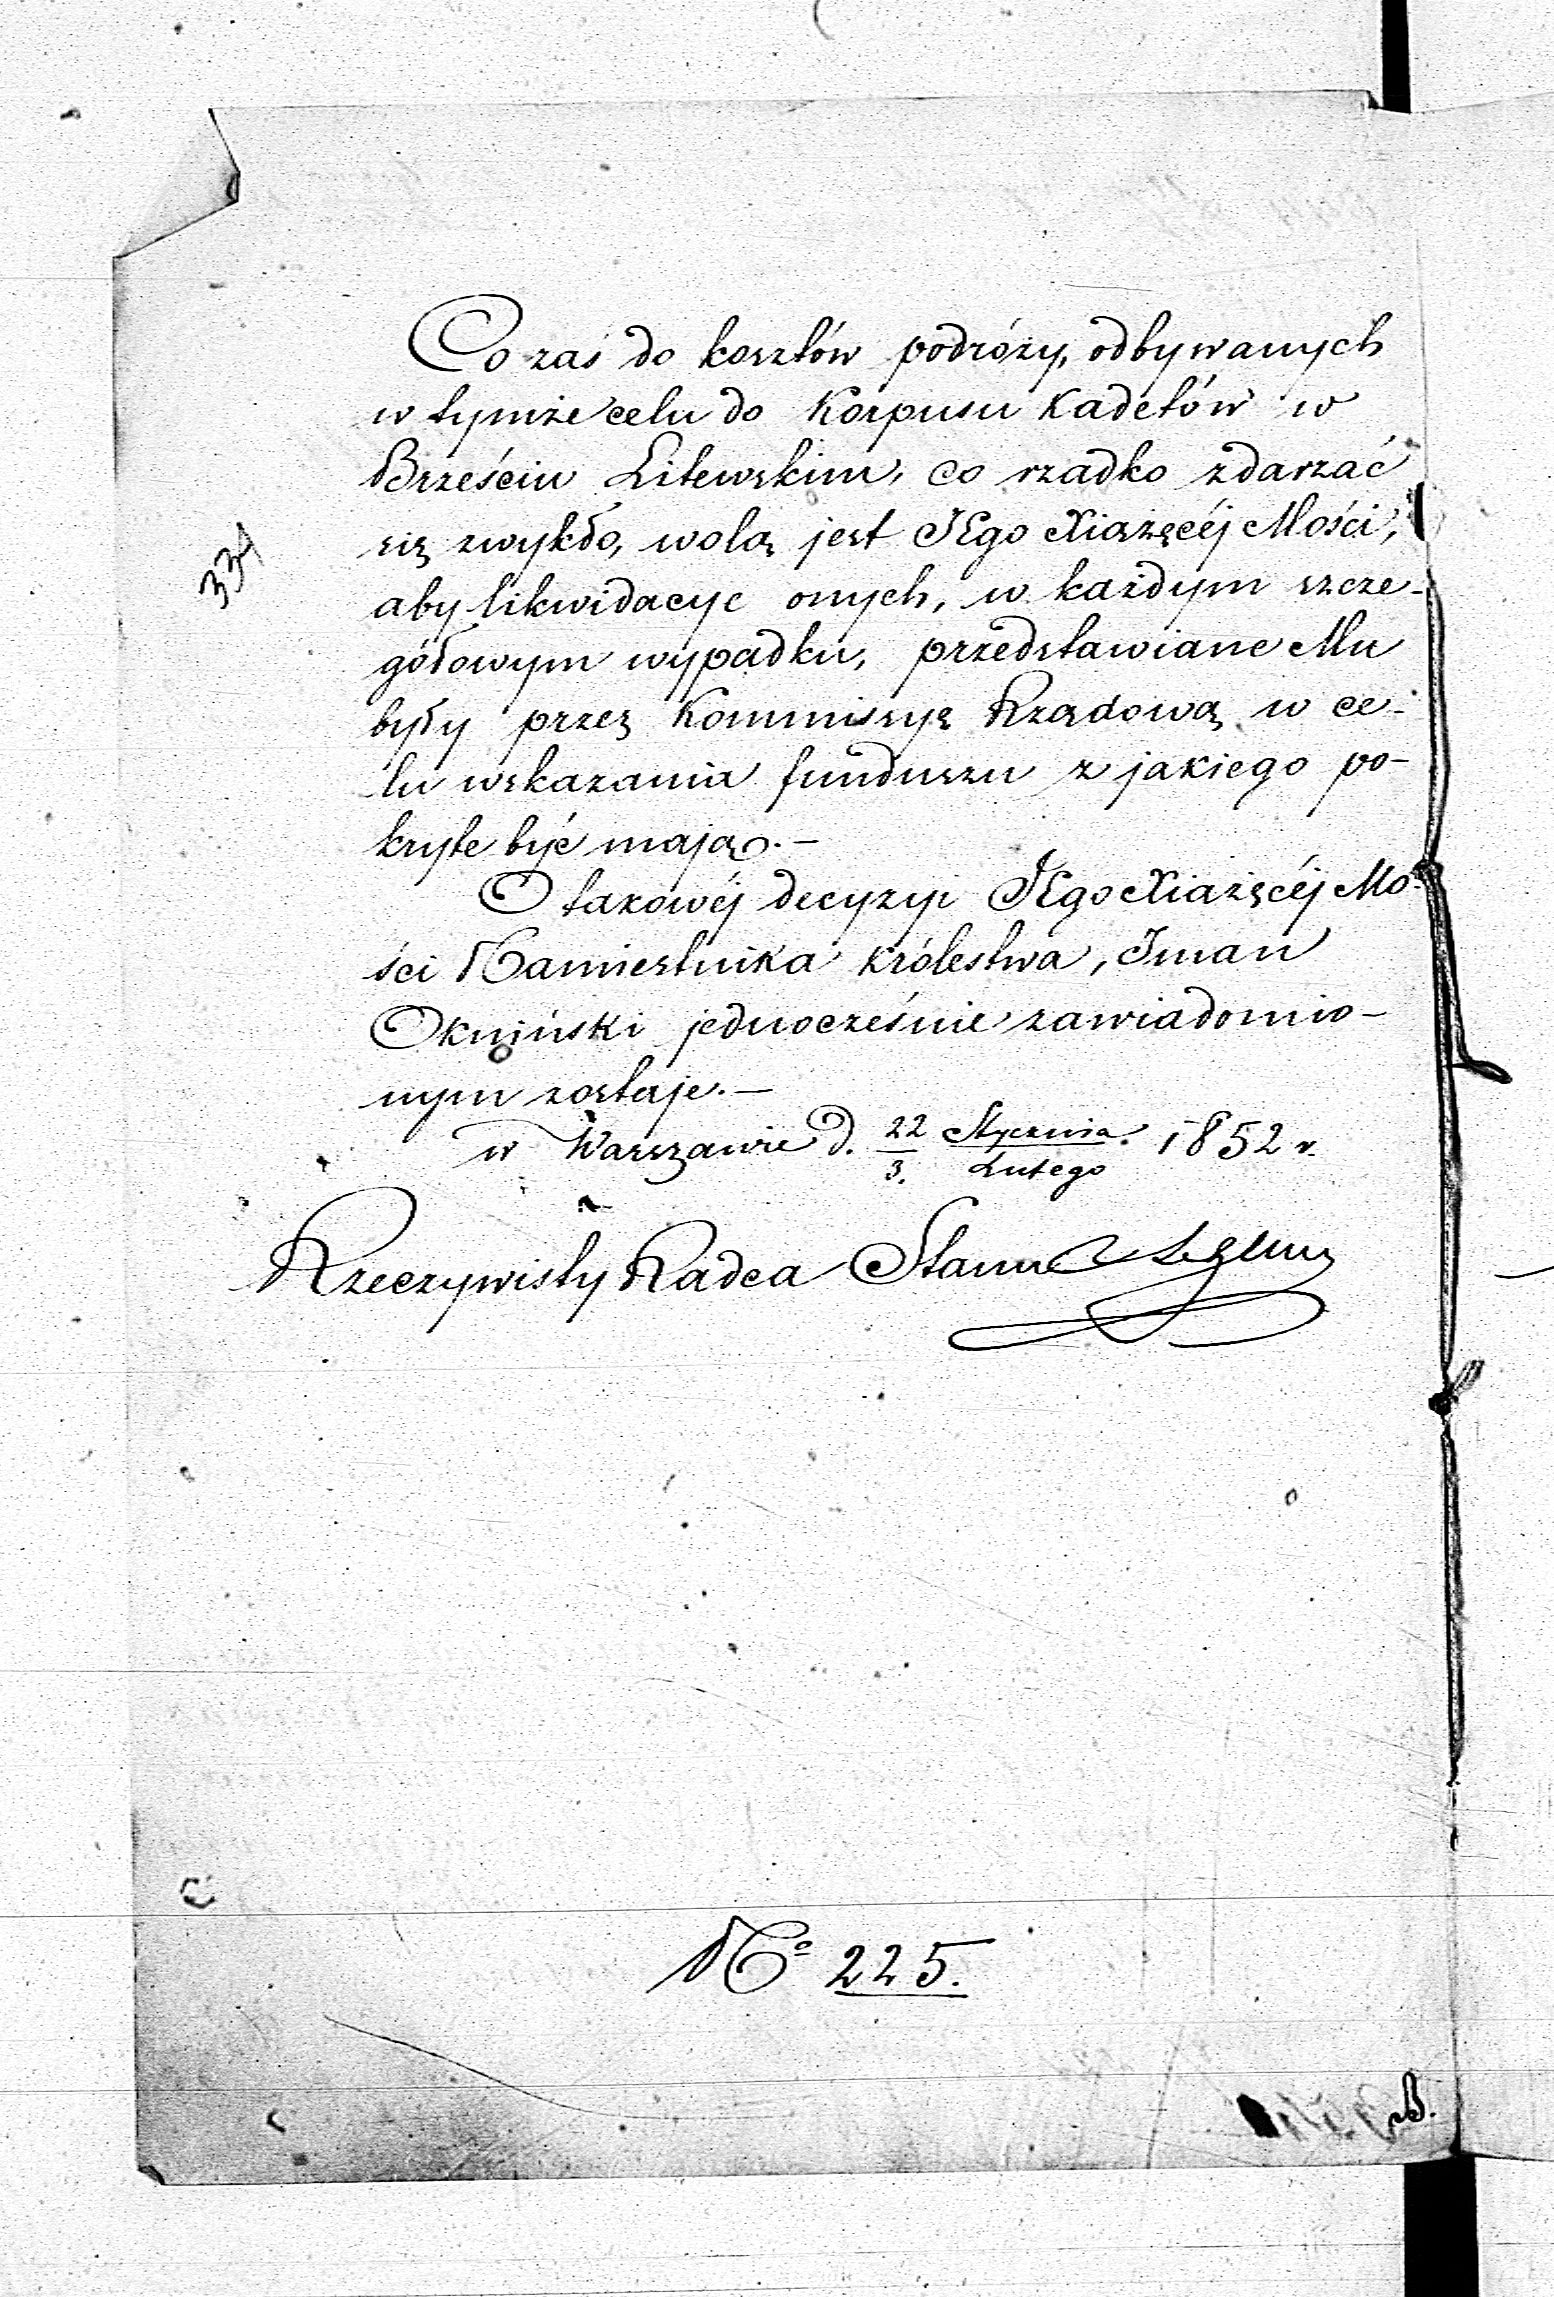 Co zaś do kosztów podróży, odbywanych
w tymże celu do Korpusu Kadetów w
Brześciu Litewskim, co rzadko zdarzać
się zwykło, wolą jest JEgo Xiążęcéj Mości,
aby likwidacye onych, w każdym szcze-
gółowym wypadku, przedstawiane Mu
były przez Kommissyę Rządową w ce-
lu wskazania funduszu z jakiego po-
kryte być mają.-
O takowéj decyzyi JEgo Xiążęcéj Mo-
ści Namiestnika Królestwa, Iman
Okniński jednocześnie zawiadomio-
nym zostaje.-
w Warszawie d. 22/3. Stycznia/Lutego 1852 r.
Rzeczywisty Radca Stanu
334
No 225.
B.